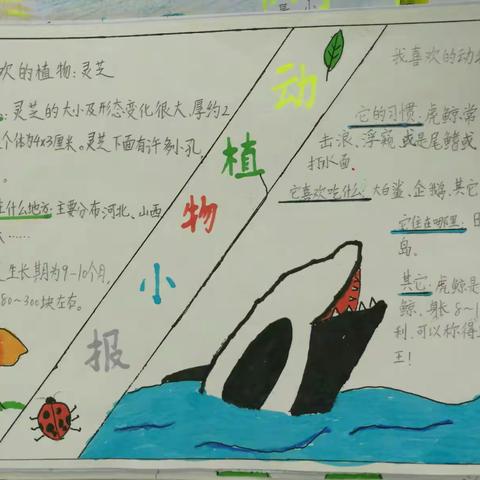 欢的植物:灵芝
灵芝的大小及形态变化很大,厚约2
个体为4x3厘米。灵芝下面有许多小孔,
什么地方:主要分布河北、山西
……
生长期为9-10个月,
80~300块左右。
动
植
物
小
报
我喜欢的动
它的习惯:虎鲸常
击浪、浮窥,或是尾鳍或
打水面。
它喜欢吃什么:大白鲨、企鹅、其它
它住在哪里:
岛。
其它:虎鲸是
鲸、身长8~1
利,可以称得
王!